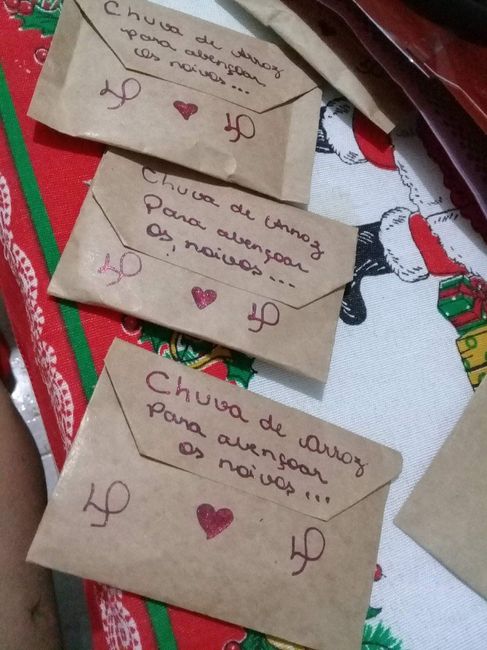 Chuva de Arroz
para abençoar
os noivos...
Chuva de Arroz
Para abençoar
os noivos...
Chuva de Arroz
Para abençoar
os noivos...